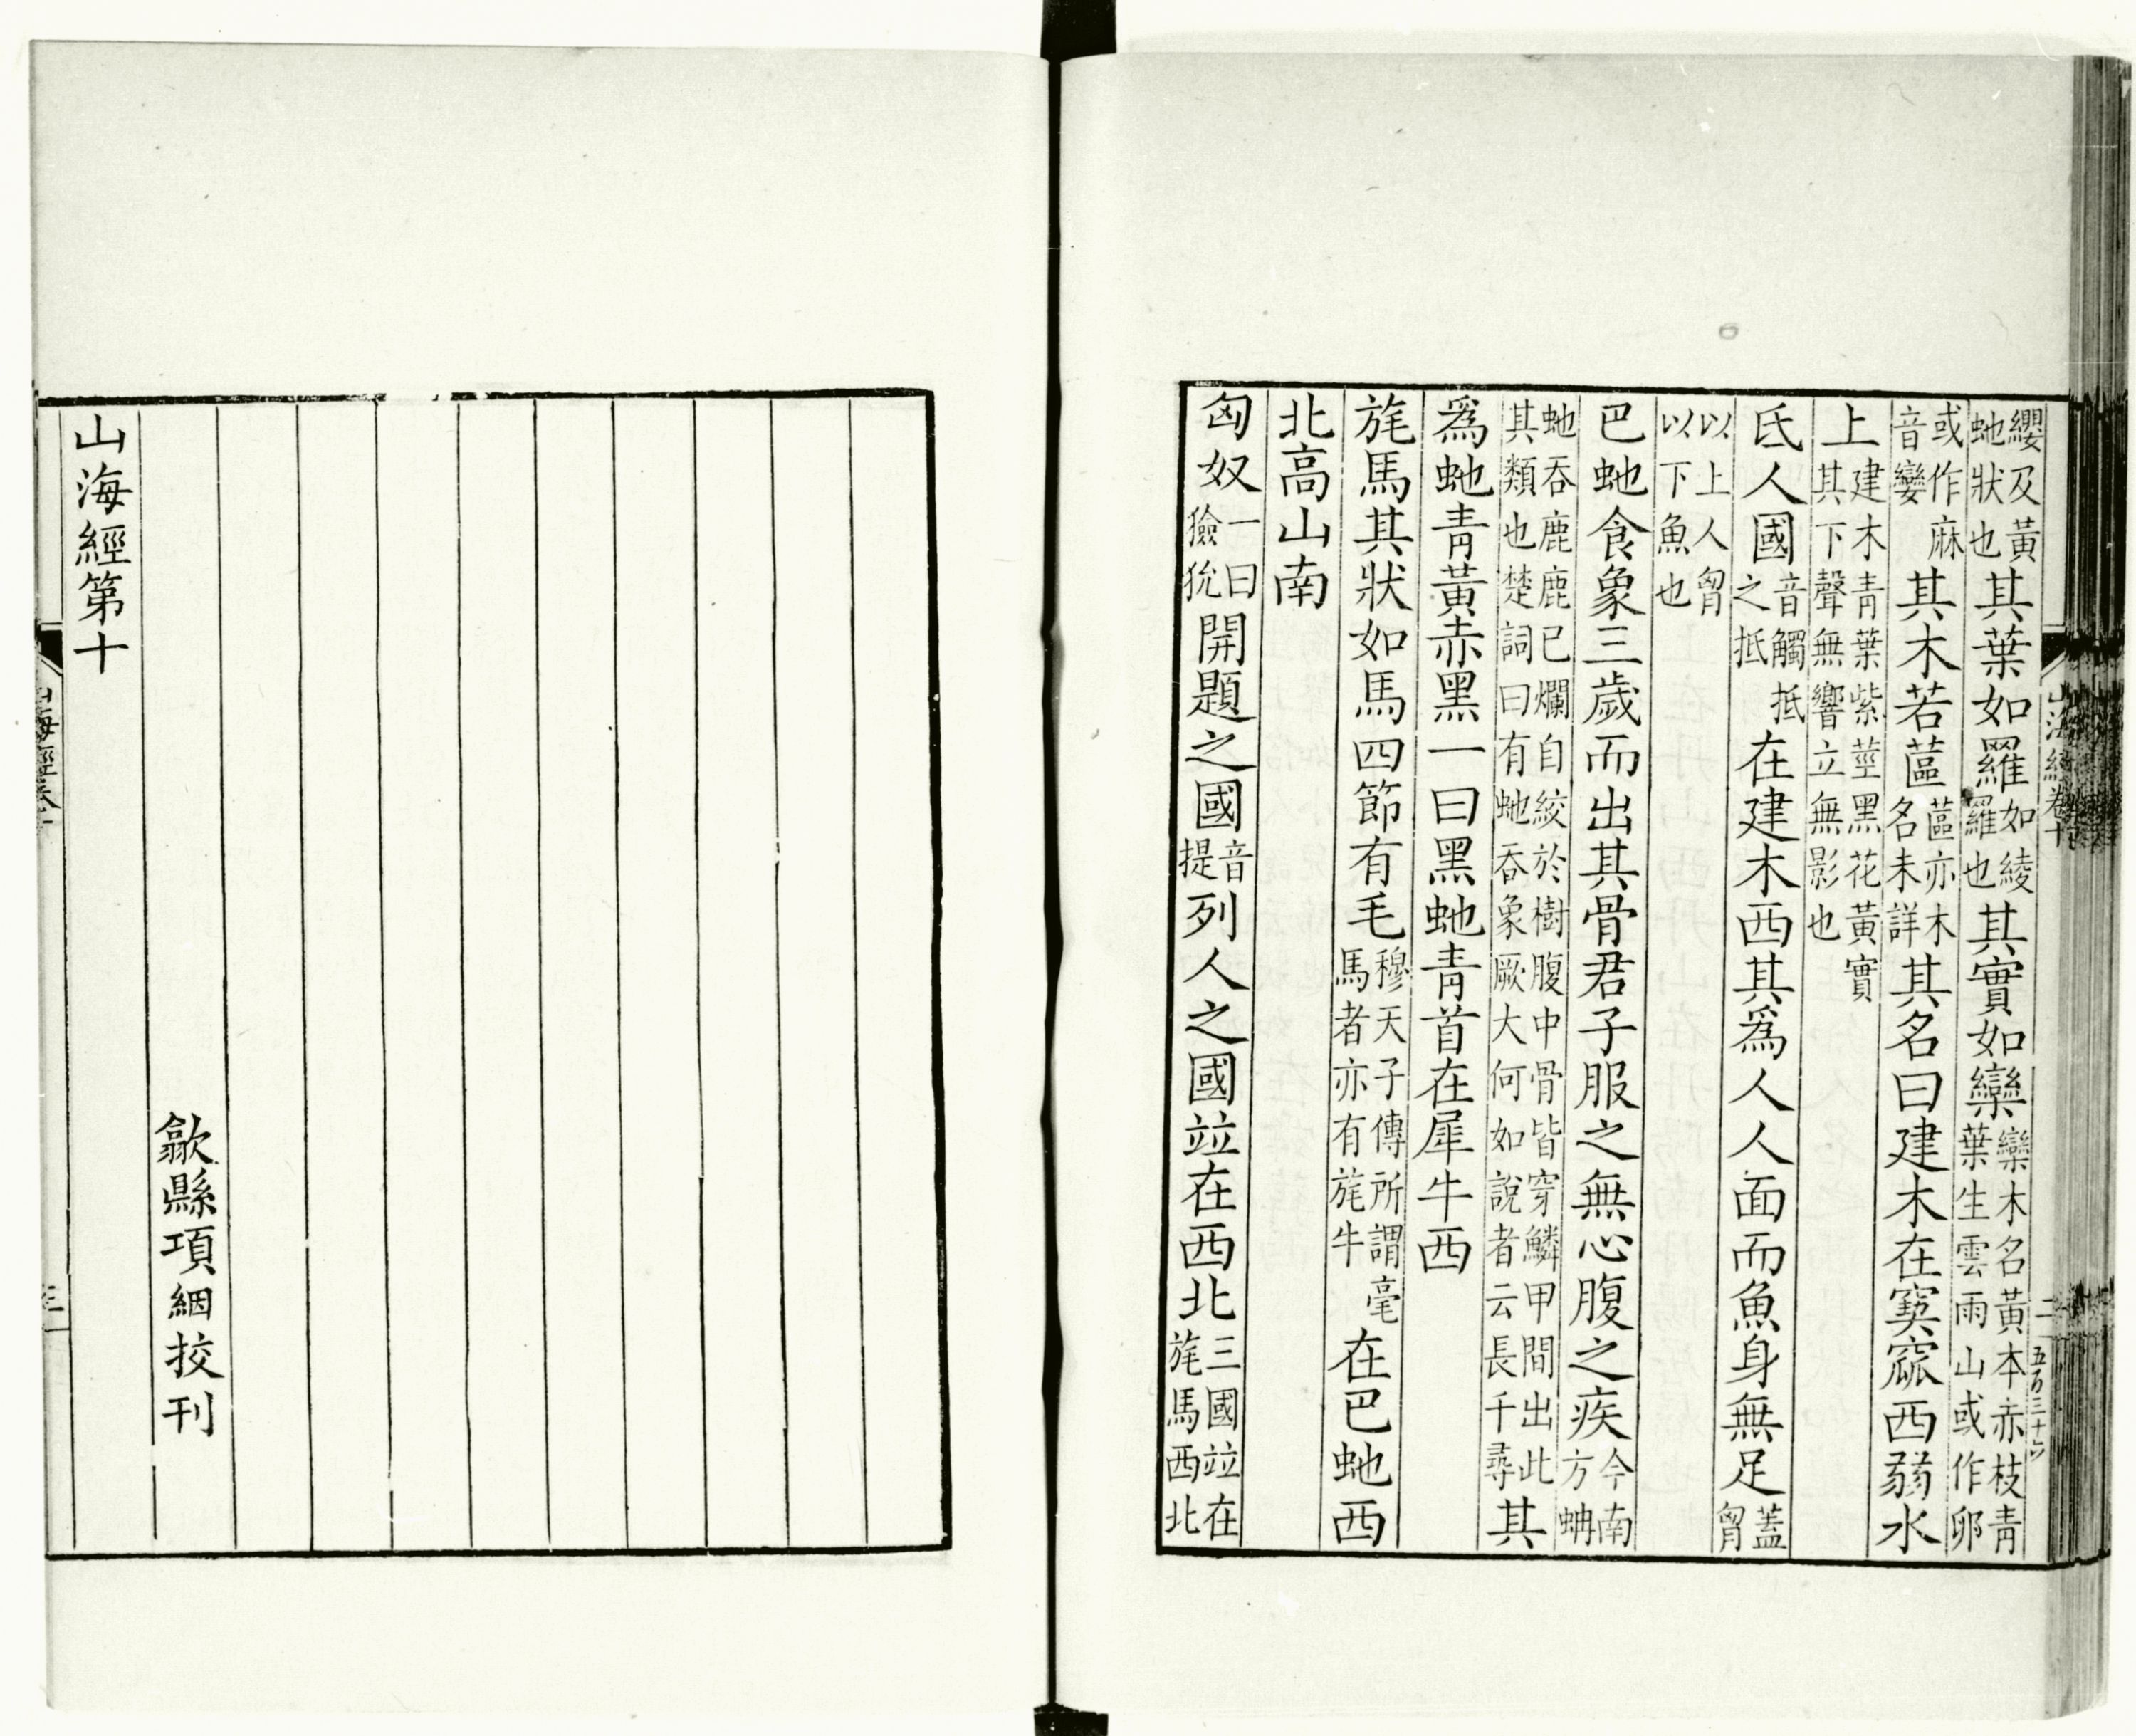 纓及黃蛇狀也其葉如羅如綾羅也其實如欒欒木名黃本赤枝青葉生雲雨山或作卵
或作麻音攣其木若蓲蓲亦木名未詳其名曰建木在窫窳西弱水
上建木青葉紫莖黑花黃實其下聲無響立無影也
氐人國音觸抵之抵在建木西其爲人人面而魚身無足蓋胷
以上人胷以下魚也
巴虵食象三歲而出其骨君子服之無心腹之疾今南方蚺
虵吞鹿鹿已爛自絞於樹腹中骨皆穿鱗甲間出此其類也楚詞曰有虵吞象厥大何如說者云長千尋其
爲虵青黃赤黑一曰黑虵青首在犀牛西
旄馬其狀如馬四節有毛穆天子傳所謂毫馬者亦有旄牛在巴虵西
北高山南
匈奴一曰獫狁開題之國音提列人之國竝在西北三國竝在旄馬西北
山海經卷十
二
五百三十六
歙縣項絪挍刊
山海經第十
山海經卷十
三